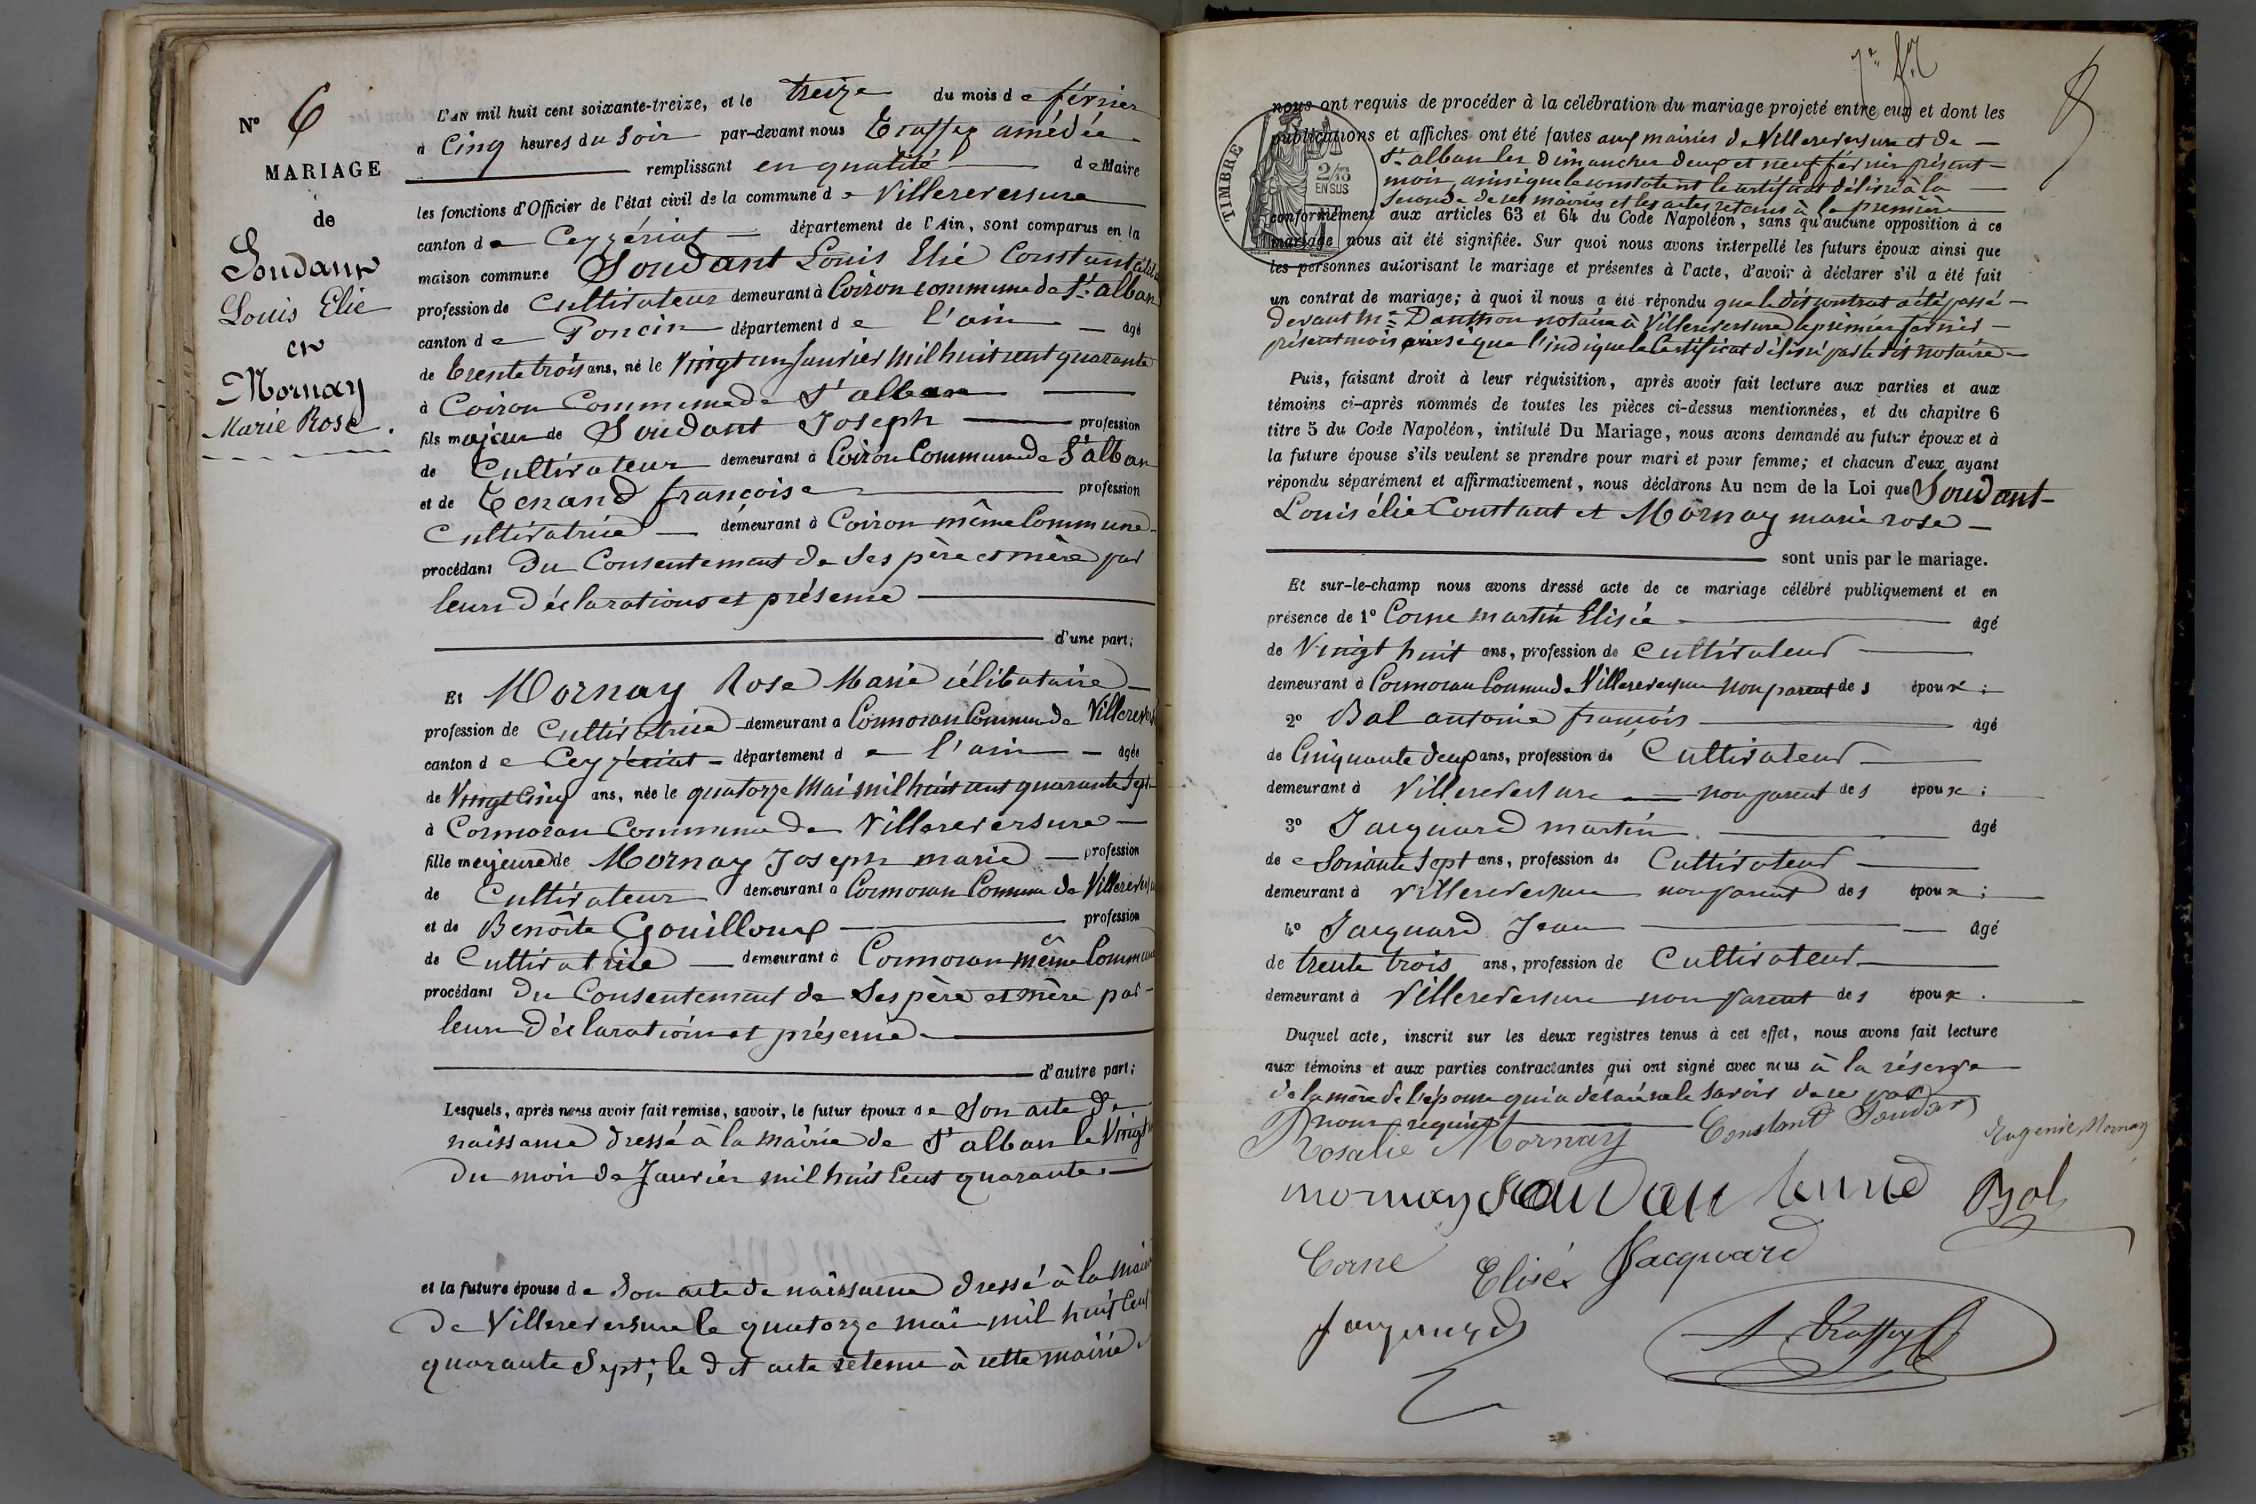 N° 6
MARIAGE
de
Soudant
Louis Elie
et
Mornay
Marie Rose.
L'AN mil huit cent soixante-treize, et le treize du mois de février
à Cinq heures du Soir par-devant nous Trassy amédée
remplissant en qualité de Maire
les fonctions d'Officier de l'état civil de la commune de Villereversure
canton de Ceyzériat département de l'Ain, sont comparus en la
maison commune Soudant Louis Elie Constant
profession de Cultivateur demeurant à Coiron commune de St alban
canton de Poncin département de l'ain agé
de trente trois ans, né le Vingt un Janvier Mil huit cent quarante
à Coiron Commune de St alban
fils majeur de Soudant Joseph profession
de Cultivateur demeurant à Coiron Commune de St alban
et de Tenand françoise profession
Cultivatrice demeurant à Coiron même Commune
procédant du Consentement de Ses père et mère par
leurs déclarations et présence
d'une part;
Et Mornay Rose Marie célibataire
profession de Cultivatrice demeurant à Cormoran Commune de Villerevers
canton de Ceyzériat département de l'ain agée
de Vingt Cinq ans, née le quatorze Mai mil huit cent quarante Sept
à Cormoran Commune de Villereversure
fille majeure de Mornay Joseph marie profession
de Cultivateur demeurant à Cormoran Commune de Villereversu
et de Benoîte Gouilloux profession
de Cultivatrice demeurant à Cormoran même Commune
procédant du Consentement de Ses père et mère par
leurs déclarations et présence
d'autre part;
Lesquels, après nous avoir fait remise, savoir, le futur époux de Son acte de
naissance dressé à la mairie de St alban le Vingt
du mois de Janvier mil huit Cent quarante
et la future épouse de Son acte de naissance dressé à la mairie
de Villereversure le quatorze mai mil huit Cent
quarante Sept; le dit acte retenu à cette mairie
nous ont requis de procéder à la célébration du mariage projeté entre eux et dont les
TIMBRE
2/10
EN SUS
publications et affiches ont été faites aux mairies de Villereversure et de
St alban les dimanches deux et neuf février présent
mois, ainsi que le constatent le certificat délivré à la
Seconde de ces mairies et les actes retenus à la première
conformément aux articles 63 et 64 du Code Napoléon, sans qu'aucune opposition à ce
mariage nous ait été signifiée. Sur quoi nous avons interpellé les futurs époux ainsi que
les personnes autorisant le mariage et présentes à l'acte, d'avoir à déclarer s'il a été fait
un contrat de mariage; à quoi il nous a été répondu que le dit contrat a été passé
devant Me Danthon notaire à Villereversure le premier février
présent mois ainsi que l'indique le Certificat délivré par le dit notaire
Puis, faisant droit à leur réquisition, après avoir fait lecture aux parties et aux
témoins ci-après nommés de toutes les pièces ci-dessus mentionnées, et du chapitre 6
titre 5 du Code Napoléon, intitulé Du Mariage, nous avons demandé au futur époux et à
la future épouse s'ils veulent se prendre pour mari et pour femme; et chacun d'eux ayant
répondu séparément et affirmativement, nous déclarons Au nom de la Loi que Soudant
Louis élie Constant et Mornay marie rose
sont unis par le mariage.
Et sur-le-champ nous avons dressé acte de ce mariage célébré publiquement et en
présence de 1° Corne martin Elisée agé
de Vingt huit ans, profession de Cultivateur
demeurant à Cormoran Commune de Villereversure non parent des époux;
2° Bal antoine françois agé
de Cinquante deux ans, profession de Cultivateur
demeurant à Villereversure non parent des époux;
3° Jacquard martin agé
de Soixante Sept ans, profession de Cultivateur
demeurant à Villereversure non parent des époux;
4° Jacquard Jean agé
de trente trois ans, profession de Cultivateur
demeurant à Villereversure non parent des époux.
Duquel acte, inscrit sur les deux registres tenus à cet effet, nous avons fait lecture
aux témoins et aux parties contractantes qui ont signé avec nous à la réserve
de la mère de l'épouse qui a déclaré ne le savoir de ce par
nous requise
Rosalie Mornay Constant Soudan Eugénie Mornay
mornay Soudan tenand Bal
Corne Elisée Jacquard
Jacquard A. Trassy